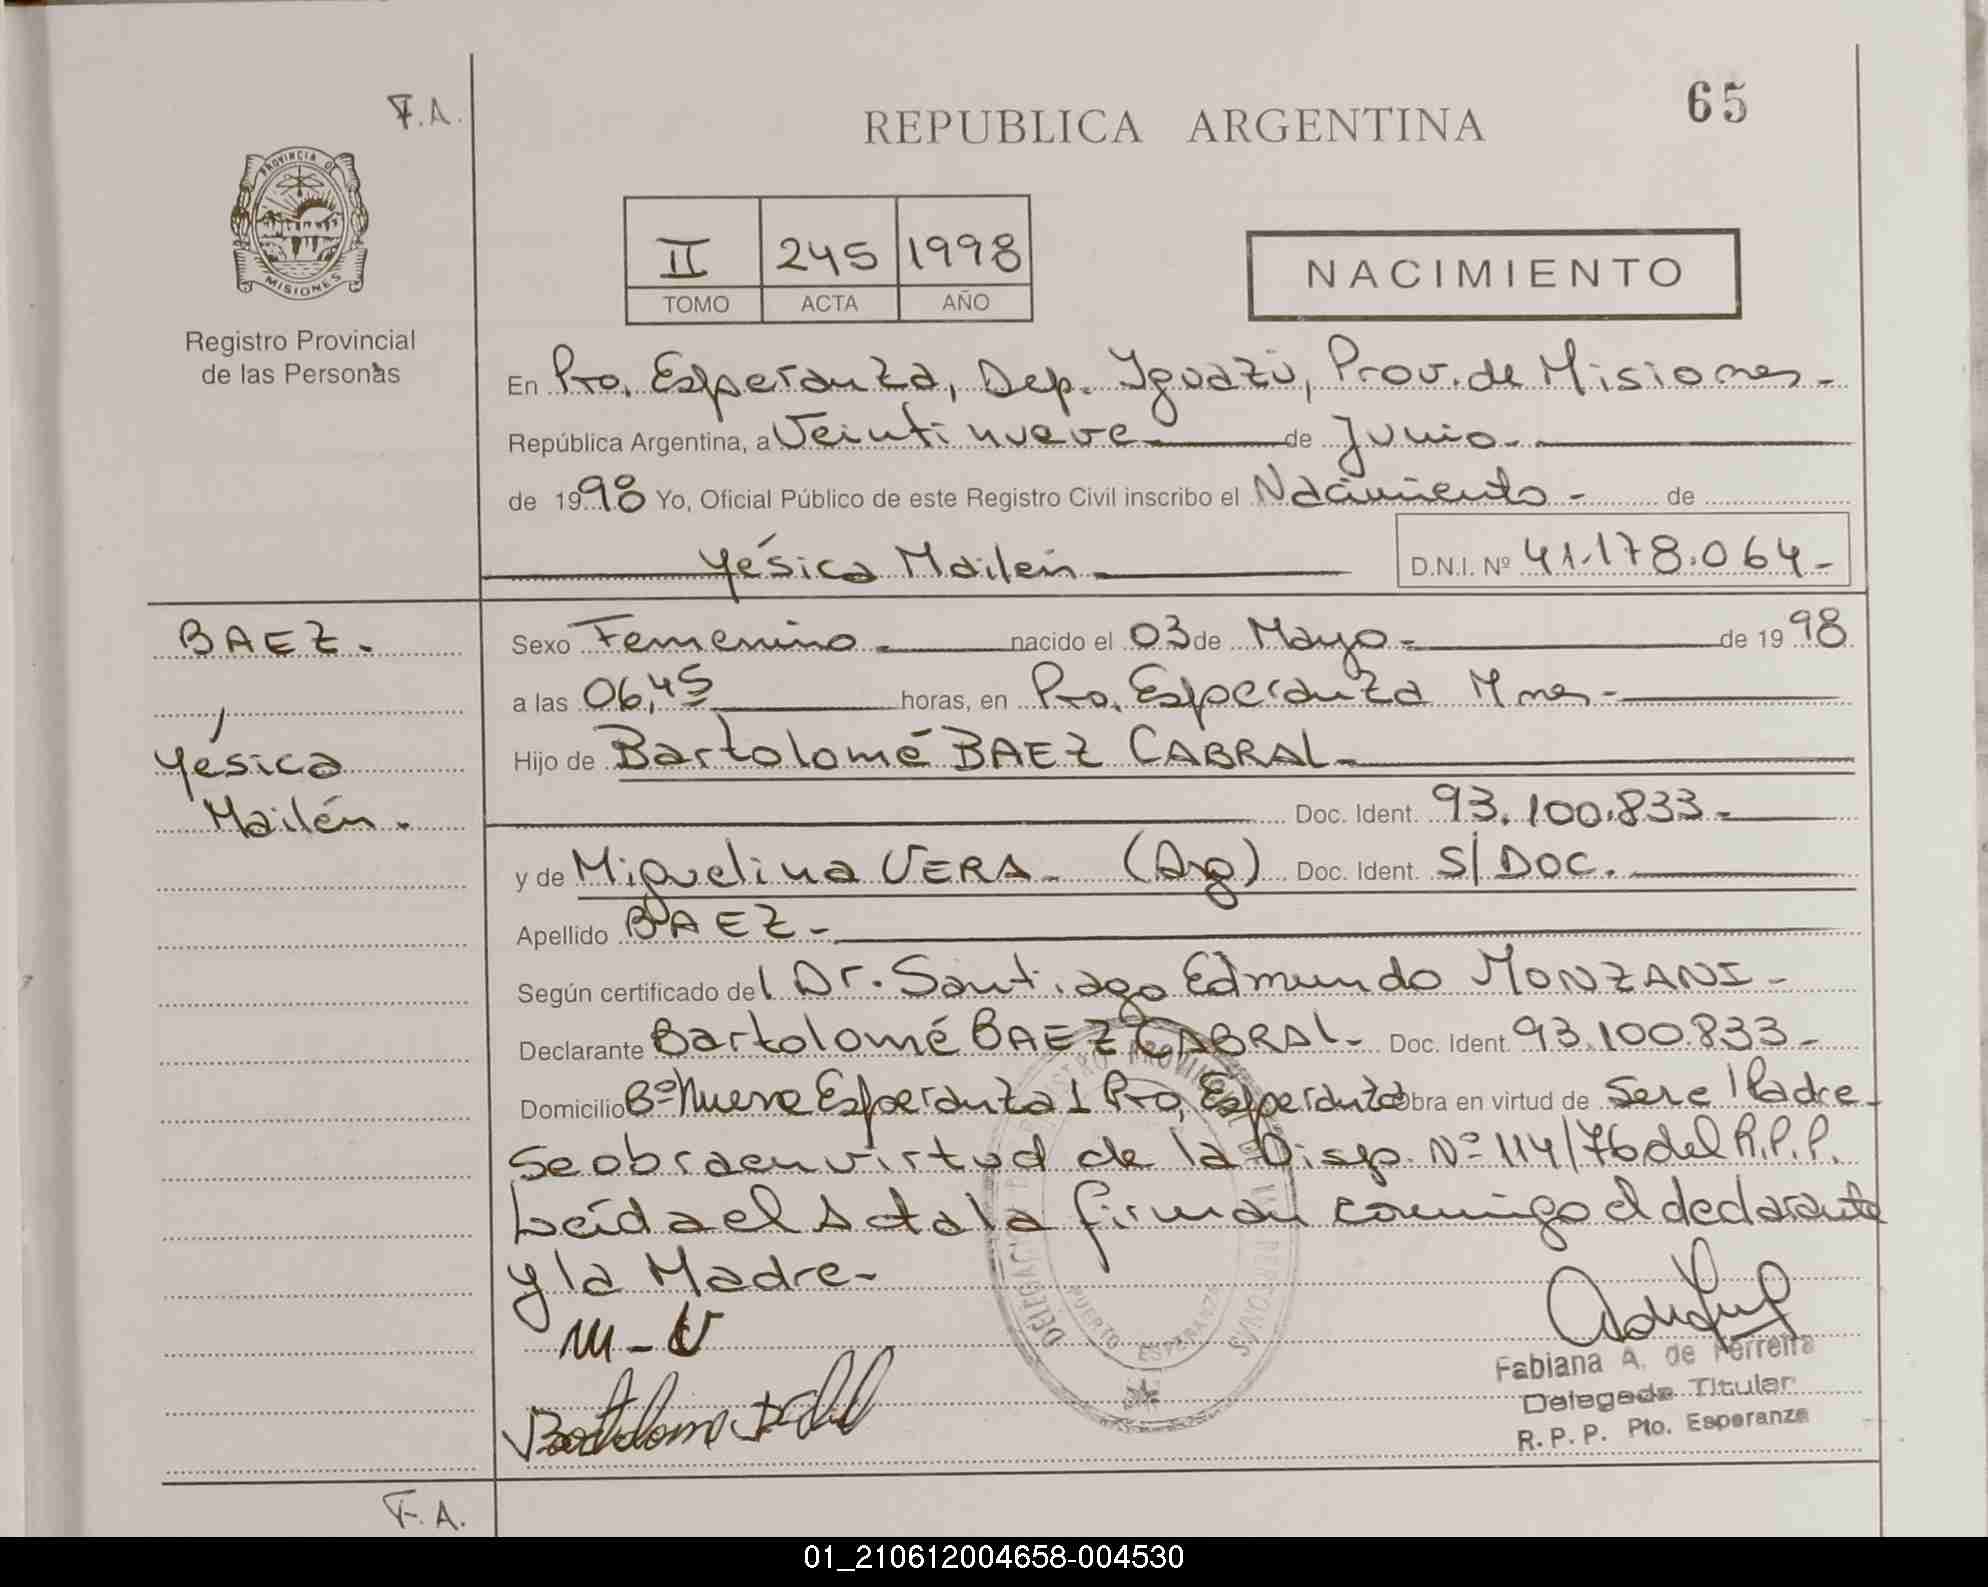 F.A.
65
REPUBLICA ARGENTINA
PROVINCIA DE
MISIONES
Registro Provincial
de las Personas
II 245 1998
TOMO ACTA AÑO
NACIMIENTO
En Pto. Esperanza, Dep. Iguazú, Prov. de Misiones-
República Argentina, a Veintinueve de Junio-
de 1998 Yo, Oficial Público de este Registro Civil inscribo el Nacimiento- de
Yésica Mailén-
D.N.I. Nº 41.178.064-
BAEZ.
Yésica
Mailén.
Sexo Femenino- nacido el 03 de Mayo- de 1998
a las 06,45 horas, en Pto. Esperanza Mnes-
Hijo de Bartolomé BAEZ CABRAL-
Doc. Ident. 93.100.833-
y de Miguelina VERA- (Arg) Doc. Ident. S/DOC.
Apellido BAEZ-
Según certificado del Dr. Santiago Edmundo MONZANI-
Declarante Bartolomé BAEZ CABRAL- Doc. Ident. 93.100.833-
Domicilio Bº Nueva Esperanza 1 Pto. Esperanza Obra en virtud de Ser el Padre-
Se obra en virtud de la Disp. Nº 114/76 del R.P.P.
Leída el Acta la firman conmigo el declarante
y la Madre-
M-V
DELEGACION REGISTRO PROVINCIAL DE LAS PERSONAS
PUERTO ESPERANZA
Fabiana A. de Ferreira
Delegada Titular
R. P. P. Pto. Esperanza
F.A.
01_210612004658-004530